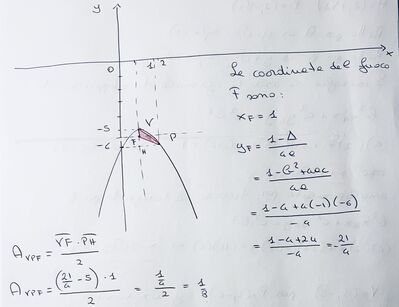 y
x
0
1 2
V
-5
F
P
-6
H
Le coordinate del fuoco
F sono:
x_F = 1
y_F = (1-Δ)/(4a)
= (1-b²+4ac)/(4a)
= (1-4+4(-1)(-6))/(-4)
= (1-4+24)/(-4) = -21/4
A_VPF = (VF · PH)/2
A_VPF = ((21/4 - 5) · 1)/2 = (1/4)/2 = 1/8